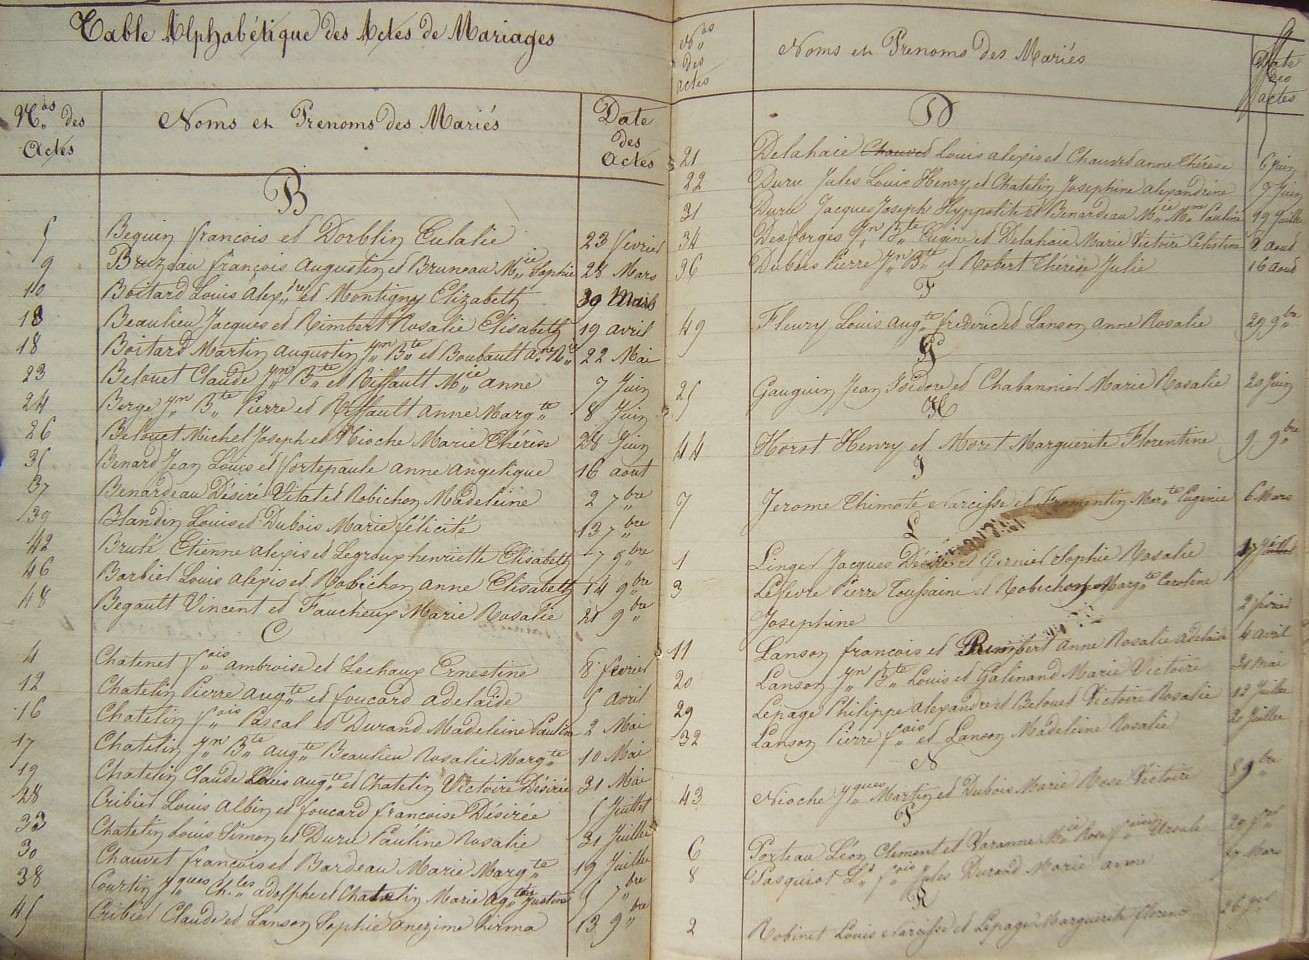 Table Alphabétique des Actes de Mariages
Nos des Actes
Noms et Prenoms des Mariés
Date des Actes
B
5 Beguin françois et Dorblin Eulalie 23 fevrier
9 Bruzeau françois Augustin et Bruneau Mie Sophie 28 Mars
10 Boitard Louis Alexdre et Montigny Elizabeth 30 Mars
18 Beaulieu Jacques et Rimbert Rosalie Elisabeth 19 avril
18 Boitard Martin Augustin Jn Bte et Boubault 22 Mai
23 Belouet Claude Jn Bte et Riffault Mie anne 7 Juin
24 Berge Jn Bte Pierre et Riffault anne Margte 8 Juin
26 Belouet Michel Joseph et Nioche Marie Thérèse 28 Juin
35 Benard Jean Louis et fortepaule anne angelique 16 aout
37 Benardeau Désiré Vital et Robichon Madeleine 2 7bre
39 Blandin Louis et Dubois Marie félicité 13 7bre
42 Brulé Etienne alexis et Legroux henriette Elisabeth 7 9bre
46 Barbier Louis alexis et Robichon anne Elisabeth 14 9bre
48 Begault Vincent et Faucheux Marie Rosalie 21 9bre
C
4 Chatenet fois ambroise et Lechaux Ernestine 8 fevrier
12 Chatelin Pierre augte et foucard adelaïde 5 avril
16 Chatelin fois Pascal et Durand Madeleine Pauline 2 Mai
17 Chatelin Jn Bte Augte Beaulieu Rosalie Margte 10 Mai
19 Chatelin Claude Louis augte et Chatelin Victoire Désirée 31 Mai
28 Cribier Louis Albin et foucard francoise Désirée 5 Juillet
33 Chatelin Louis Simon et Duru Pauline Rosalie 31 Juillet
30 Chauvet françois et Bardeau Marie Margte 19 Juillet
38 Courtin Jques Chles adolphe et Chatelin Marie Justine 5 7bre
45 Cribier Claude et Lanson Sophie onezime firma 13 9bre
Nos des actes
Noms et Prenoms des Mariés
Date des actes
9
D
21 Delahaie Chauvet Louis alexis et Chauvet anne thérèse 6 Juin
22 Duru Jules Louis Henry et Chatelin Josephine alexandrine 7 Juin
31 Duru Jacques Joseph Hyppolite et Benardeau Mie Pauline 19 Juillet
34 Desforges Jn Bte Eugene et Delahaie Marie Victoire Celestine 2 aout
36 Dubois Pierre Jn Bte et Robert Thérèse Julie 16 aout
F
49 Fleury Louis Augte frederic et Lanson Anne Rosalie 29 9bre
G
25 Gauguin Jean Isidore et Chabannier Marie Rosalie 20 Juin
H
44 Horst Henry et Morot Marguerite Florentine 9 9bre
J
7 Jerome Thimoté Narcisse et Fromentin Margte Eugenie 6 Mars
L
1 Linger Jacques Désiré et Gernier Sophie Rosalie
3 Lefevre Pierre Toussaint et Robichon Margte Caroline
Josephine 2 fevrier
11 Lanson françois et Rimbert Anne Rosalie adelaïde 4 avril
20 Lanson Jn Bte Louis et Galinand Marie Victoire 31 Mai
29 Lepage Philippe Alexandre et Belouet Victoire Rosalie 13 Juillet
32 Lanson Pierre fois et Lanson Madeleine Rosalie 20 Juillet
N
43 Nioche Jques Martin et Dubois Marie Rose Victoire 8 9bre
P
6 Porteau Léon Clement et Varanne Mie Rose Ursule
8 Pasquiet Ls fois Jules Durand Marie anne
R
2 Robinet Louis Narcisse et Lepage Marguerite florence